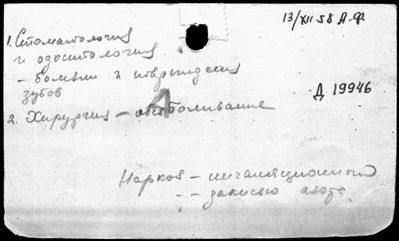 13/XII 58 Д.Ф.
1. Стоматология
и одонтология
- болезни и повреждения
зубов
Д 19946
2. Хирургия – обезболивание
Наркоз – ингаляционный
- - закисью азота